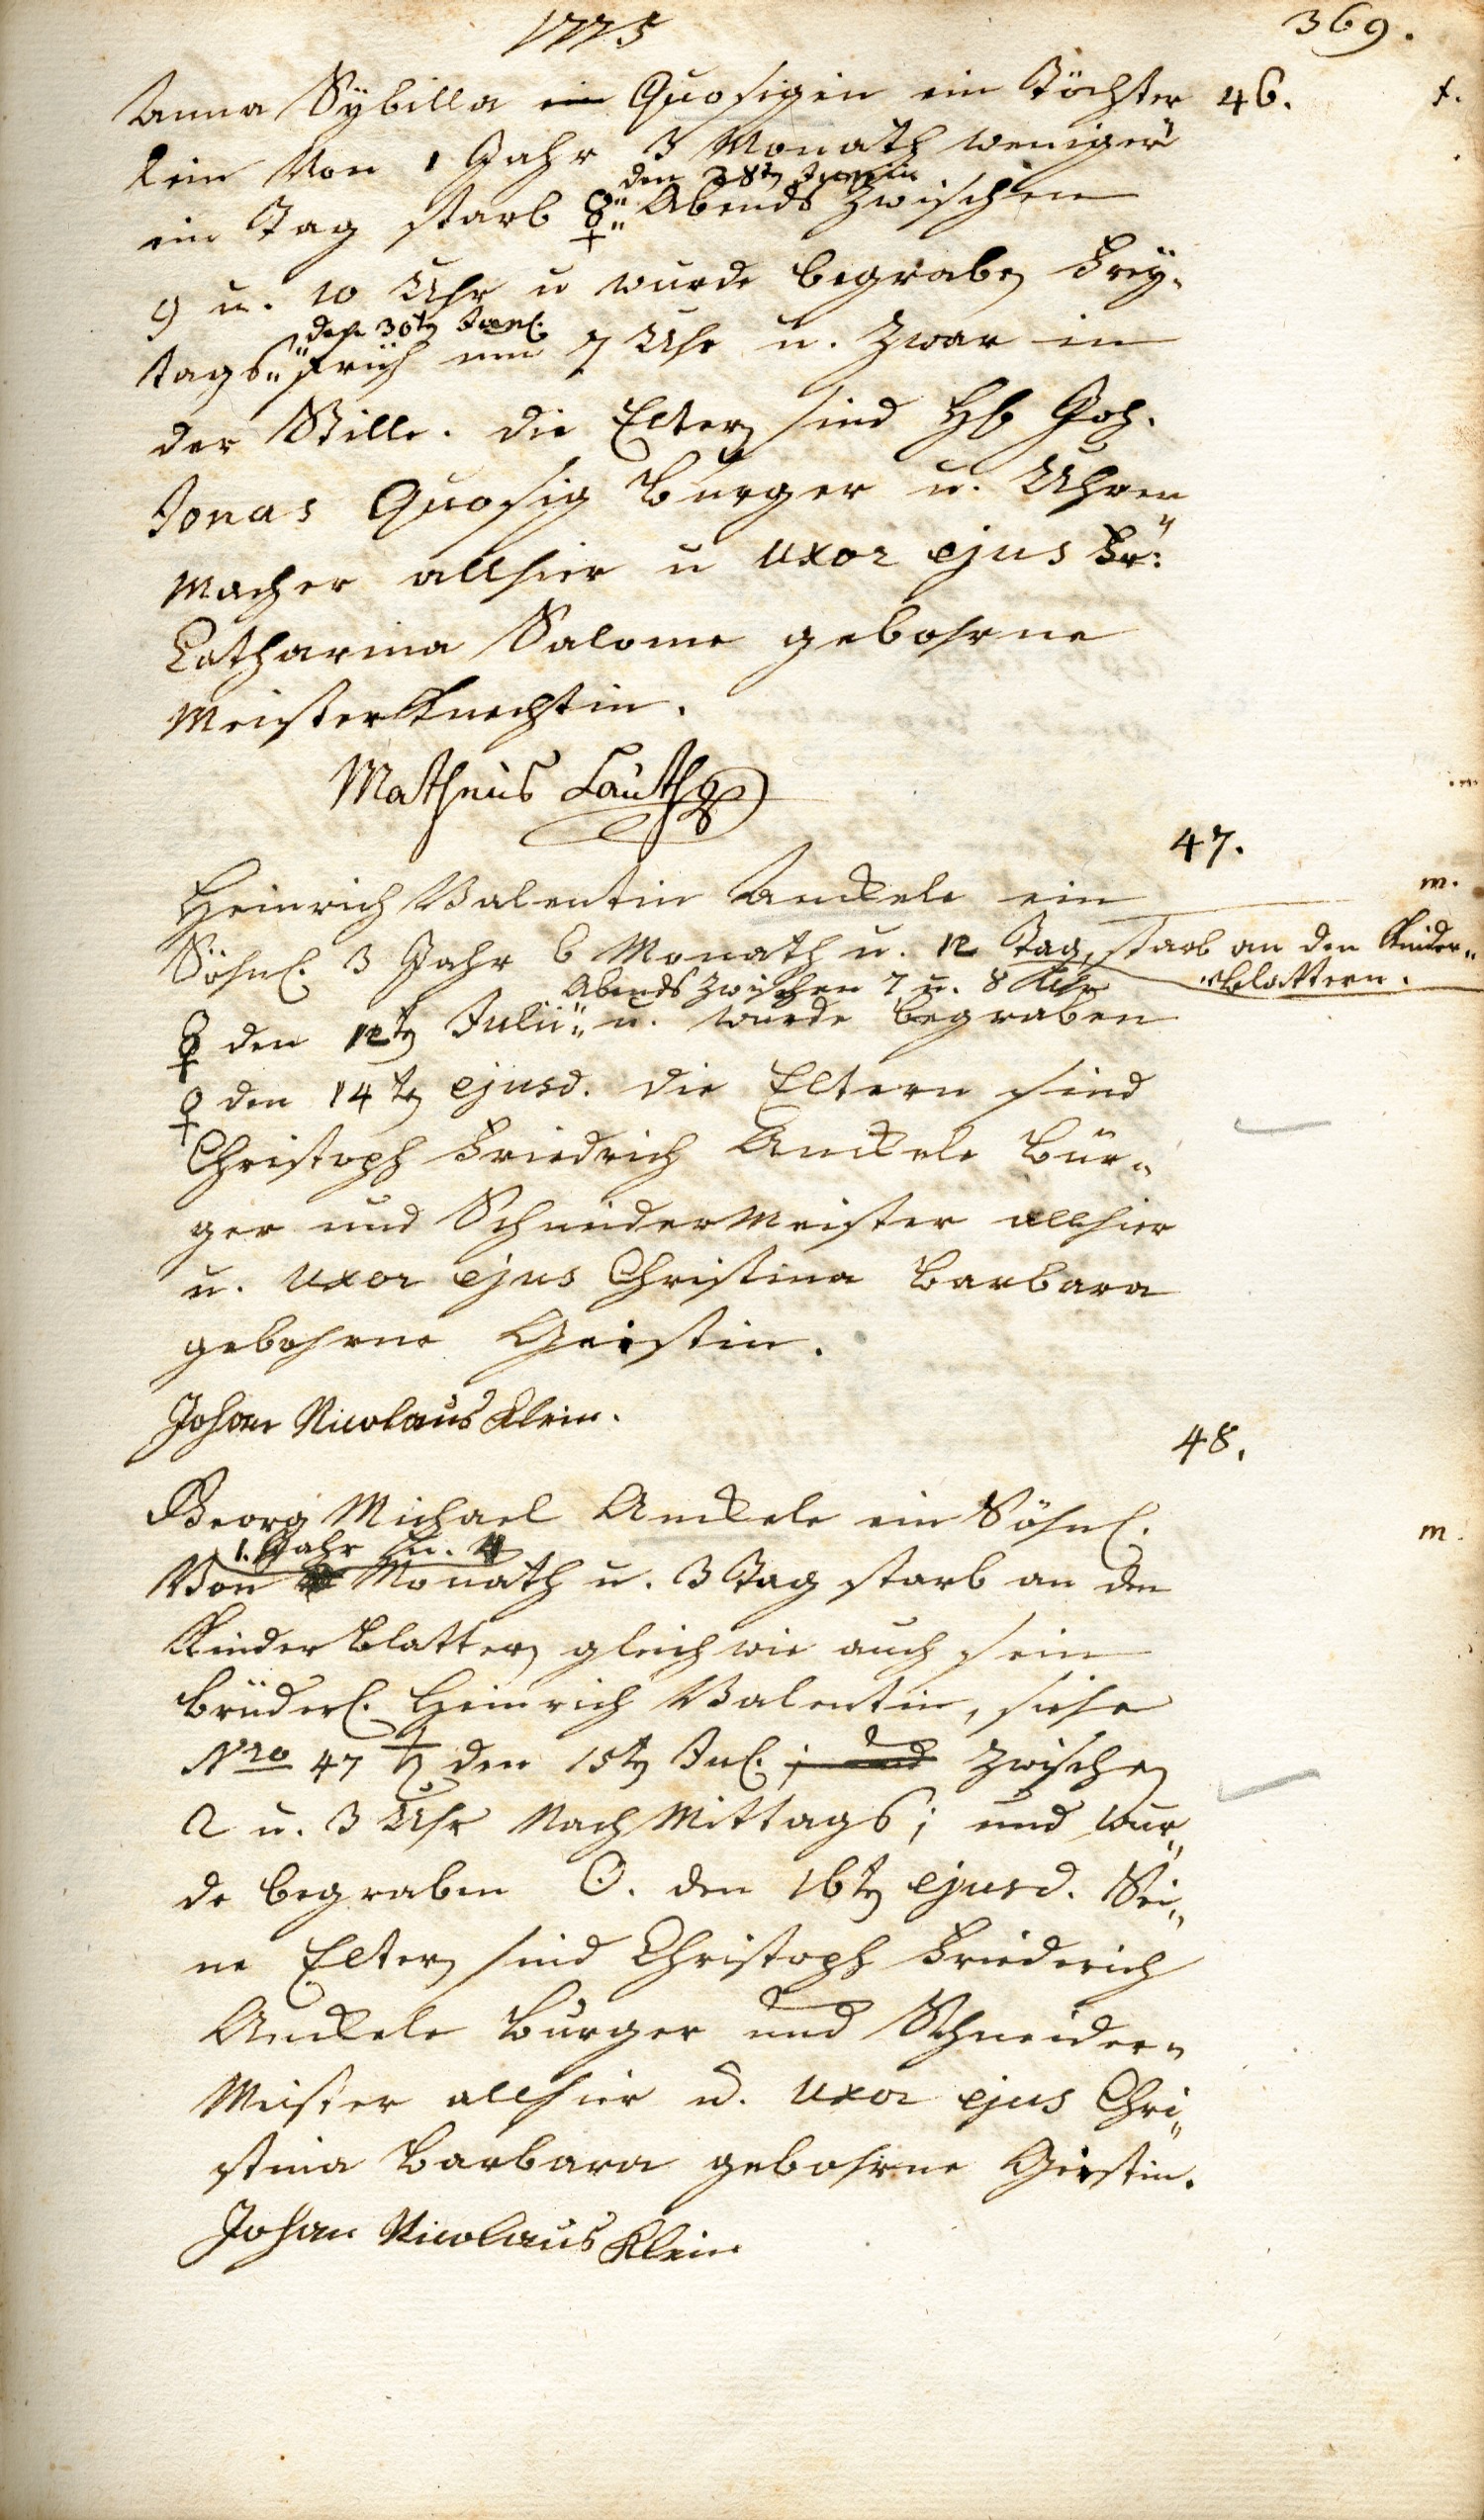 1775
369.
Anna Sybilla ein Quosigin ein Töchter 46. f.
lein Von 1 Jahr 3 Monath weniger
den 28tn Junii
ein Tag starb ☿ Abends zwischen
9 u. 10 Uhr u wurde begraben Frey-
den 30tn Junl.
tags früh um 7 Uhr u. zwar in
der Stille. die Eltern sind Hl Joh.
Jonas Quosig Burger u. Uhren
macher allhier u uxor ejus Fr:
Catharina Salome gebohrne
Meisterknechtin.
Matheus Lauth
47.
Heinrich Valentin Anckele ein m.
Söhnl. 3 Jahr 6 Monath u. 12 Tag, starb an den Kinder-
blattern.
Abends zwischen 7 u. 8 Uhr
☿ den 12tn Julii u. wurde begraben
♀ den 14tn ejusd. die Eltern sind
Christoph Friedrich Anckele Bür-
ger und Schneidermeister allhier
u. uxor ejus Christina Barbara
gebohrne Geistin.
Johan Nicolaus Klein.
48.
Georg Michael Anckele ein Söhnl. m.
1. Jahr u. 4
Von Monath u. 3 Tag starb an den
Kinderblattern gleich wie auch sein
Brüderl. Heinrich Valentin, siehe
Nro 47 ♄ den 15tn Jul. ; und zwischen
2 u. 3 Uhr NachMittags; und wur-
de begraben ☉. den 16tn ejusd. Sei-
ne Eltern sind Christoph Friederich
Anckele Burger und Schneider-
Meister allhier u. uxor ejus Chri-
stina Barbara gebohrne Geistin.
Johan Nicolaus Klein